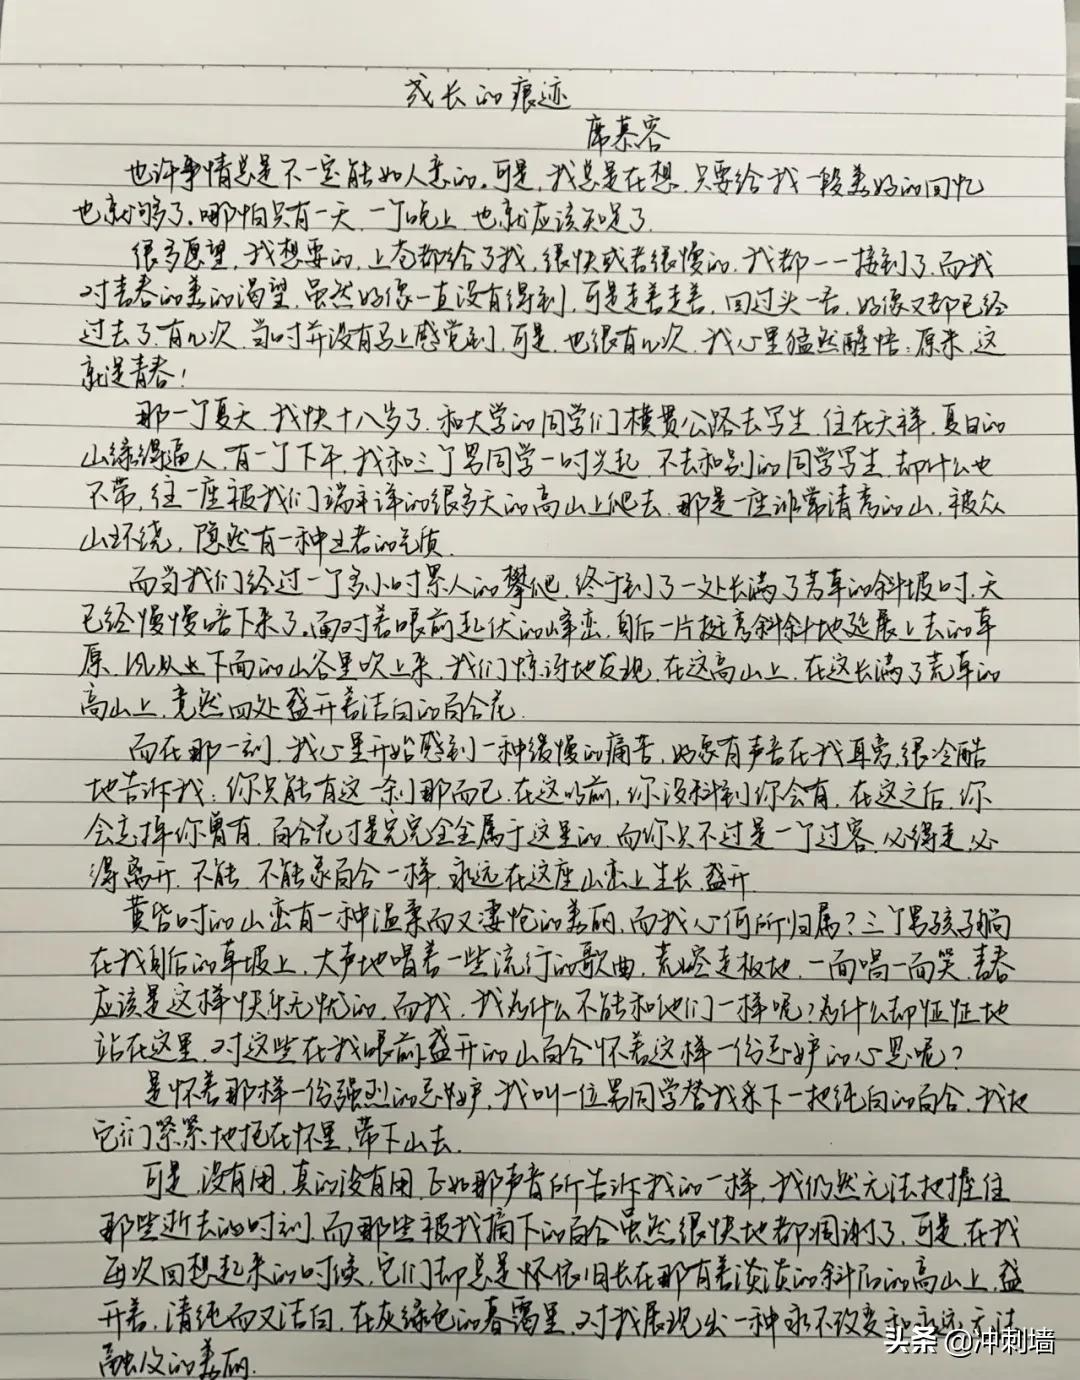 成长的痕迹
席慕容
也许事情总是不一定能如人意的。可是,我总是在想,只要给我一段美好的回忆
也就够了。哪怕只有一天,一个晚上,也就应该知足了。
很多愿望,我想要的,上苍都给了我,很快或者很慢的,我都一一接到了,而我
对青春的美的渴望,虽然好像一直没有得到,可是走着走着,回过头一看,好像又都已经
过去了,有几次,当时并没有马上感觉到,可是,也很有几次,我心里猛然醒悟:原来,这
就是青春!
那一个夏天,我快十八岁了,和大学的同学们横贯公路去写生,住在天祥,夏日的
山绿得逼人,有一个下午,我和三个男同学一时兴起,不去和别的同学写生,却什么也
不带,往一座被我们端详的很多天的高山上爬去,那是一座非常清秀的山,被众
山环绕,隐然有一种王者的气质。
而当我们经过一个多小时累人的攀爬,终于到了一处长满了芳草的斜坡时,天
已经慢慢暗下来了。面对着眼前起伏的峰峦,身后一片挺秀斜斜地延展上去的草
原,风从下面的山谷里吹上来,我们惊讶地发现,在这高山上,在这长满了荒草的
高山上,竟然四处盛开着洁白的百合花。
而在那一刻,我心里开始感到一种缓慢的痛苦,好象有声音在我耳旁,很冷酷
地告诉我:你只能有这一刹那而已,在这以前,你没料到你会有,在这之后,你
会忘掉你曾有,百合花才是完完全全属于这里的,而你只不过是一个过客,必得走,必
得离开,不能,不能象百合一样,永远在这座山峦上生长,盛开。
黄昏时的山峦有一种温柔而又凄怆的美丽,而我心何所归属?三个男孩子躺
在我身后的草坡上,大声地唱着一些流行的歌曲,荒腔走板地,一面唱一面笑,青春
应该是这样快乐无忧的,而我,我为什么不能和他们一样呢?为什么却怔怔地
站在这里,对这些在我眼前盛开的山百合怀着这样一份忌妒的心思呢?
是怀着那样一份强烈的忌妒,我叫一位男同学替我采下一把纯白的百合,我把
它们紧紧地抱在怀里,带下山去。
可是,没有用,真的没有用,正如那声音所告诉我的一样,我仍然无法把握住
那些逝去的时刻,而那些被我摘下的百合虽然很快地都凋谢了,可是,在我
每次回想起来的时候,它们却总是依旧长在那有着淡淡的斜阳的高山上,盛
开着,清纯而又洁白,在灰绿色的暮霭里,对我展现出一种永不改变和永远无法
融及的美丽。
头条 @冲刺墙